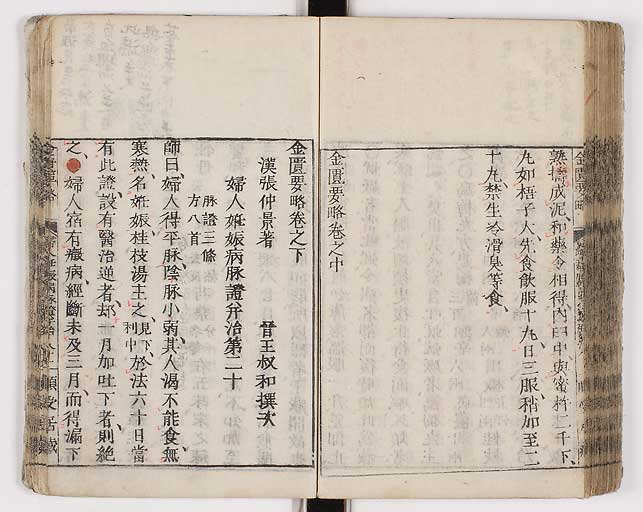 熟擣成泥和藥令相得內臼中與蜜杵二千下、
丸如梧子大、先食飲服十丸、日三服、稍加至二
十丸、禁生冷滑臭等食
金匱要略卷之中
金匱要略卷之下
漢張仲景著　晉王叔和撰次
婦人妊娠病脉證并治第二十
脉證三條
方八首
師曰、婦人得平脉、陰脉小弱、其人渴不能食、無
寒熱、名妊娠、桂枝湯主之、見下利中、於法六十日當
有此證、設有醫治逆者、却一月加吐下者、則絕
之、●婦人宿有癥病、經斷未及三月、而得漏下
金匱要略